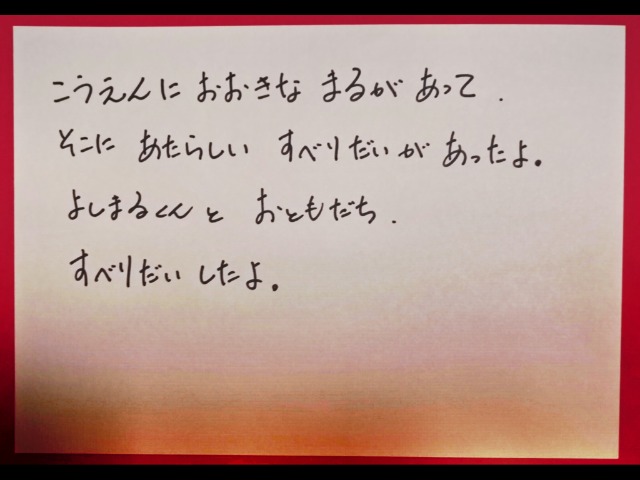 こうえんに おおきな まるが あって.
そこに あたらしい すべりだいが あったよ。
よしまるくんと おともだち.
すべりだい したよ。